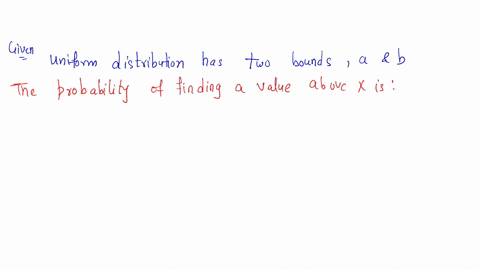 Given
Uniform distribution has two bounds, a & b
The probability of finding a value above x is: